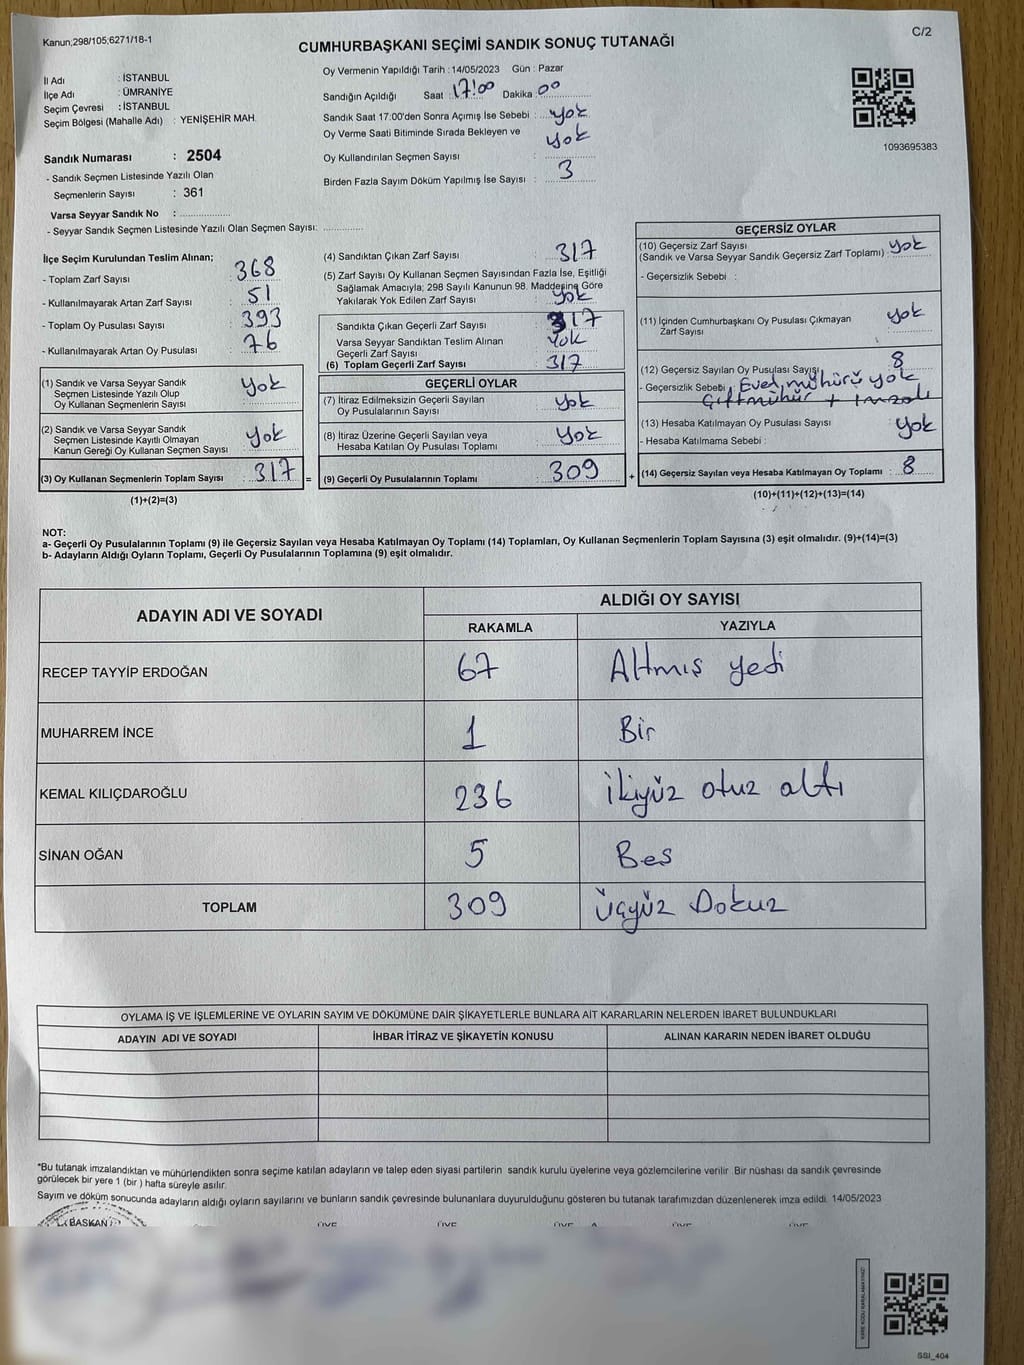 Kanun;298/105;6271/18-1
CUMHURBAŞKANI SEÇİMİ SANDIK SONUÇ TUTANAĞI
C/2
İl Adı : İSTANBUL
İlçe Adı : ÜMRANİYE
Seçim Çevresi : İSTANBUL
Seçim Bölgesi (Mahalle Adı) : YENİŞEHİR MAH.
Sandık Numarası : 2504
- Sandık Seçmen Listesinde Yazılı Olan
Seçmenlerin Sayısı : 361
Varsa Seyyar Sandık No :
- Seyyar Sandık Seçmen Listesinde Yazılı Olan Seçmen Sayısı:
Oy Vermenin Yapıldığı Tarih : 14/05/2023 Gün : Pazar
Sandığın Açıldığı Saat 17:00 Dakika 00
Sandık Saat 17:00'den Sonra Açımış İse Sebebi : Yok
Oy Verme Saati Bitiminde Sırada Bekleyen ve
Oy Kullandırılan Seçmen Sayısı : Yok
Birden Fazla Sayım Döküm Yapılmış İse Sayısı : 3
1093695383
İlçe Seçim Kurulundan Teslim Alınan;
- Toplam Zarf Sayısı : 368
- Kullanılmayarak Artan Zarf Sayısı : 51
- Toplam Oy Pusulası Sayısı : 393
- Kullanılmayarak Artan Oy Pusulası : 76
(1) Sandık ve Varsa Seyyar Sandık
Seçmen Listesinde Yazılı Olup
Oy Kullanan Seçmenlerin Sayısı : Yok
(2) Sandık ve Varsa Seyyar Sandık
Seçmen Listesinde Kayıtlı Olmayan
Kanun Gereği Oy Kullanan Seçmen Sayısı : Yok
(3) Oy Kullanan Seçmenlerin Toplam Sayısı : 317
(1)+(2)=(3)
=
(4) Sandıktan Çıkan Zarf Sayısı : 317
(5) Zarf Sayısı Oy Kullanan Seçmen Sayısından Fazla İse, Eşitliği
Sağlamak Amacıyla; 298 Sayılı Kanunun 98. Maddesine Göre
Yakılarak Yok Edilen Zarf Sayısı : Yok
Sandıkta Çıkan Geçerli Zarf Sayısı : 317
Varsa Seyyar Sandıktan Teslim Alınan
Geçerli Zarf Sayısı : Yok
(6) Toplam Geçerli Zarf Sayısı : 317
GEÇERLİ OYLAR
(7) İtiraz Edilmeksizin Geçerli Sayılan
Oy Pusulalarının Sayısı : Yok
(8) İtiraz Üzerine Geçerli Sayılan veya
Hesaba Katılan Oy Pusulaları Toplamı : Yok
(9) Geçerli Oy Pusulalarının Toplamı : 309
+
GEÇERSİZ OYLAR
(10) Geçersiz Zarf Sayısı
(Sandık ve Varsa Seyyar Sandık Geçersiz Zarf Toplamı) : Yok
- Geçersizlik Sebebi :
(11) İçinden Cumhurbaşkanı Oy Pusulası Çıkmayan
Zarf Sayısı : Yok
(12) Geçersiz Sayılan Oy Pusulası Sayısı : 8
- Geçersizlik Sebebi : Evet mühürü yok
Çift mühür + imzalı
(13) Hesaba Katılmayan Oy Pusulası Sayısı : Yok
- Hesaba Katılmama Sebebi :
(14) Geçersiz Sayılan veya Hesaba Katılmayan Oy Toplamı : 8
(10)+(11)+(12)+(13)=(14)
NOT:
a- Geçerli Oy Pusulalarının Toplamı (9) ile Geçersiz Sayılan veya Hesaba Katılmayan Oy Toplamı (14) Toplamları, Oy Kullanan Seçmenlerin Toplam Sayısına (3) eşit olmalıdır. (9)+(14)=(3)
b- Adayların Aldığı Oyların Toplamı, Geçerli Oy Pusulalarının Toplamına (9) eşit olmalıdır.
ADAYIN ADI VE SOYADI
ALDIĞI OY SAYISI
RAKAMLA YAZIYLA
RECEP TAYYİP ERDOĞAN 67 Altmış yedi
MUHARREM İNCE 1 Bir
KEMAL KILIÇDAROĞLU 236 İkiyüz otuz altı
SİNAN OĞAN 5 Bes
TOPLAM 309 Üçyüz Dokuz
OYLAMA İŞ VE İŞLEMLERİNE VE OYLARIN SAYIM VE DÖKÜMÜNE DAİR ŞİKAYETLERLE BUNLARA AİT KARARLARIN NELERDEN İBARET BULUNDUKLARI
ADAYIN ADI VE SOYADI İHBAR İTİRAZ VE ŞİKAYETİN KONUSU ALINAN KARARIN NEDEN İBARET OLDUĞU
*Bu tutanak imzalandıktan ve mühürlendikten sonra seçime katılan adayların ve talep eden siyasi partilerin sandık kurulu üyelerine veya gözlemcilerine verilir. Bir nüshası da sandık çevresinde
görülecek bir yere 1 (bir ) hafta süreyle asılır.
Sayım ve döküm sonucunda adayların aldığı oyların sayılarını ve bunların sandık çevresinde bulunanlara duyurulduğunu gösteren bu tutanak tarafımızdan düzenlenerek imza edildi. 14/05/2023
BAŞKAN ÜYE ÜYE ÜYE ÜYE ÜYE
KARE KODU KARALAMAYINIZ!
SSI_404